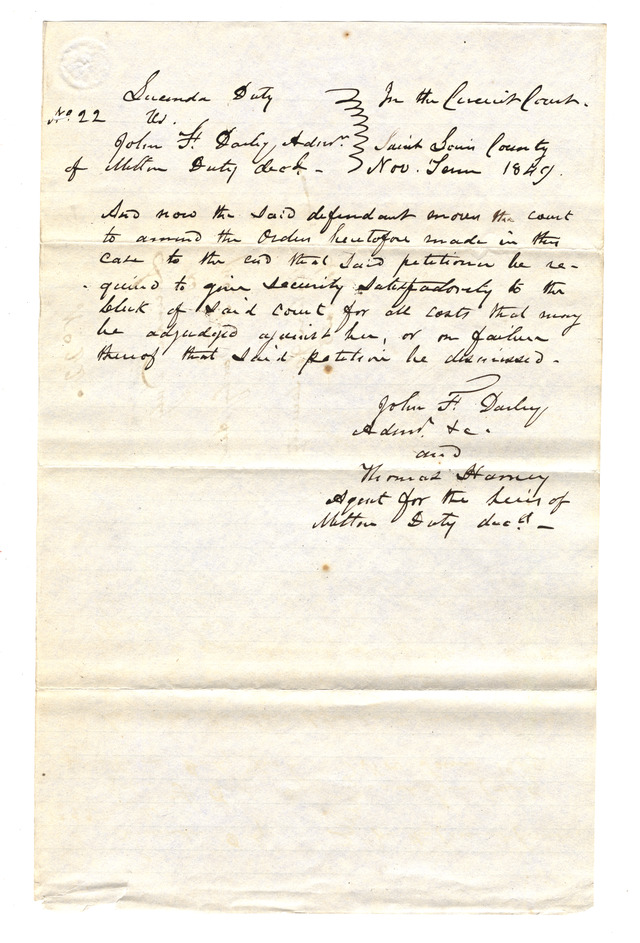 Lucinda Duty
No. 22 vs.
John F. Darby, Admr.
of Milton Duty decd. -
In the Circuit Court.
Saint Louis County
Nov. Term 1849.
And now the said defendant moves the court
to amend the order heretofore made in this
case to the end that said petitioner be re-
quired to give security satisfactorily to the
clerk of said court for all costs that may
be adjudged against her, or on failure
thereof that said petition be dismissed -
John F. Darby
Admr. &c.
and
Thomas Harney
Agent for the heirs of
Milton Duty decd. -